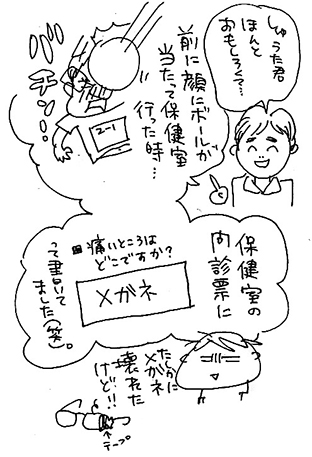 しゅうた君
ほんと
おもしろくて…
前に顔にボールが
当たって保健室
行った時…
バチン!!
2-1
保健室の
問診票に
痛いところは
どこですか?
メガネ
って書いて
ました(笑)。
たしかに
メガネ
壊れた
けど!!
テープ